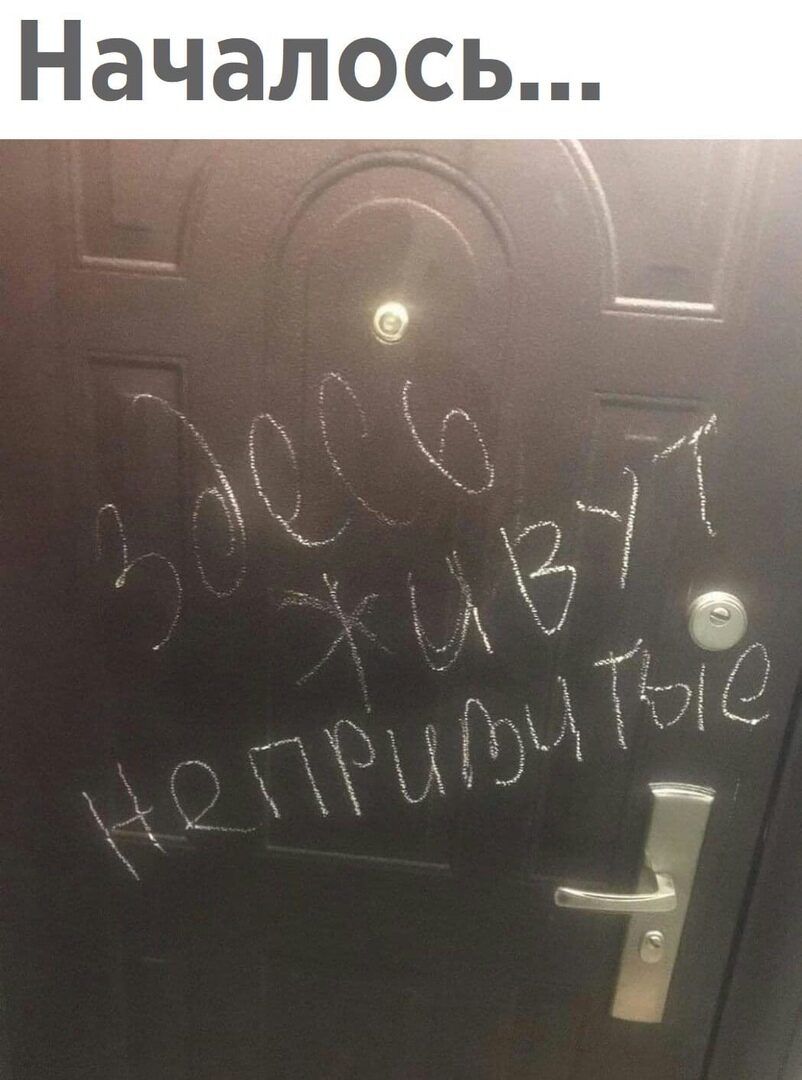 Началось...
Здесь
живут
непривитые